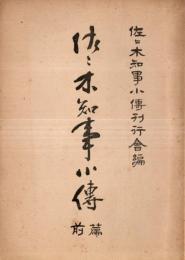 佐々木知事小傳刊行會編
佐々木知事小傳
前篇